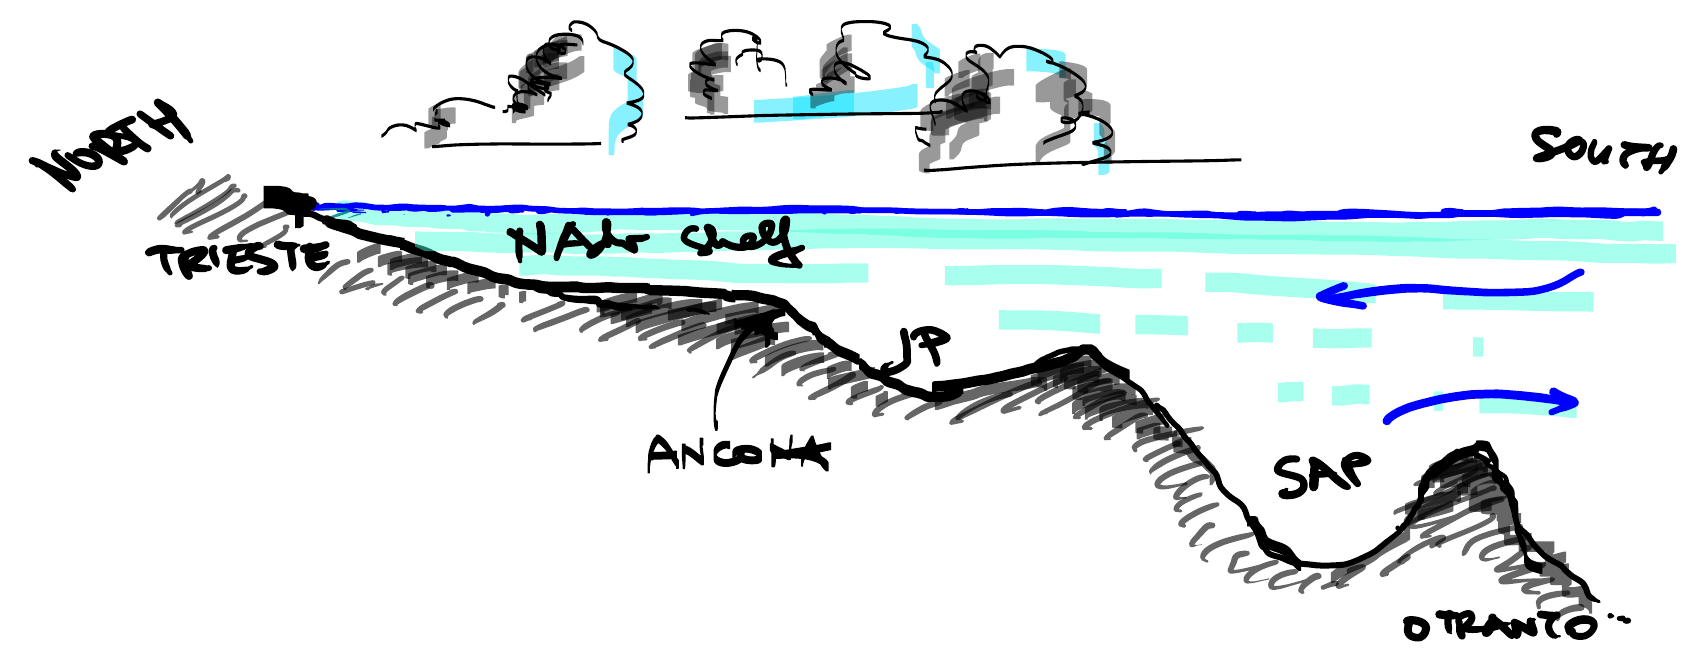 NORTH
SOUTH
TRIESTE
NAdr Shelf
JP
ANCONA
SAP
OTRANTO...